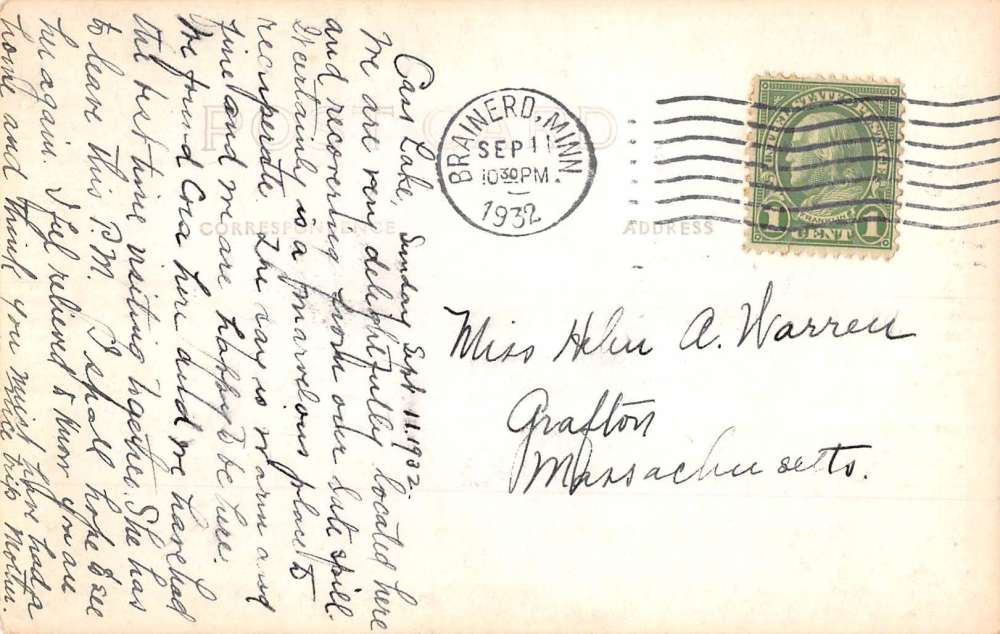 POST CARD
CORRESPONDENCE
ADDRESS
Cass Lake, Sunday Sept. 11, 1932.
We are very delightfully located here
and recovering from our late spill.
It certainly is a marvelous place to
recuperate. The day is warm and
fine and we are happy to be here.
We found Cora here and we have had
the best time visiting together. She has
to leave this P.M. I shall hope to see
her again. I feel relieved to know you are
home and think you must have had a
nice trip. Mother.
BRAINERD, MINN.
SEP 11
10 30 PM
1932
UNITED STATES POSTAGE
FRANKLIN
1 CENT 1
Miss Helen A. Warren
Grafton
Massachusetts.